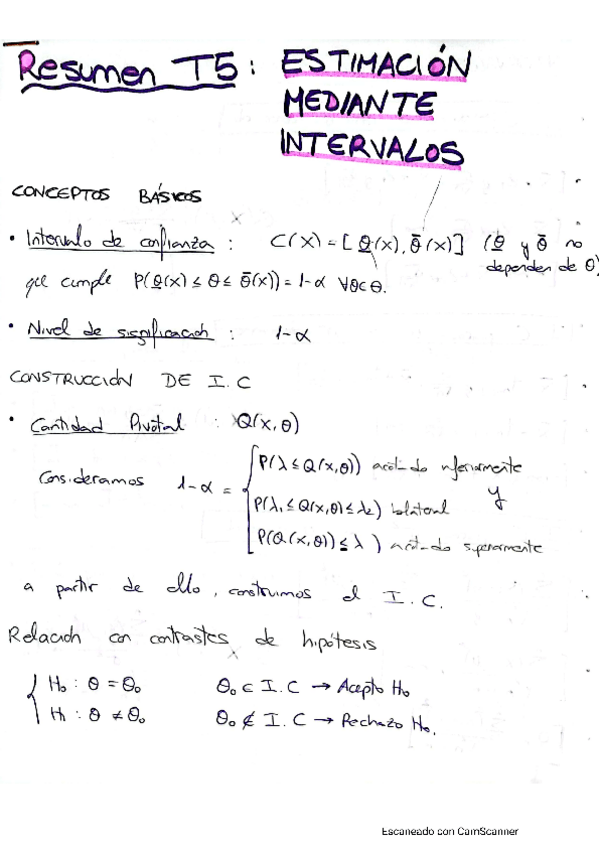 Resumen T5: ESTIMACIÓN
MEDIANTE
INTERVALOS
CONCEPTOS BÁSICOS
• Intervalo de confianza : C(X) = [θ̲(x), θ̄(x)] (θ̲ y θ̄ no
dependen de θ)
que cumple P(θ̲(x) ≤ θ ≤ θ̄(x)) = 1-α ∀θ∈Θ.
• Nivel de significación : 1-α
CONSTRUCCIÓN DE I.C
• Cantidad Pivotal : Q(X, θ)
Consideramos 1-α =
P(λ ≤ Q(x,θ)) acotado inferiormente
P(λ₁ ≤ Q(x,θ) ≤ λ₂) bilateral y
P(Q(x,θ)) ≤ λ ) acotado superiormente
a partir de ello, construimos el I.C.
Relación con contrastes de hipótesis
H₀ : θ = θ₀ θ₀ ∈ I.C → Acepto H₀
H₁ : θ ≠ θ₀ θ₀ ∉ I.C → Rechazo H₀.
Escaneado con CamScanner